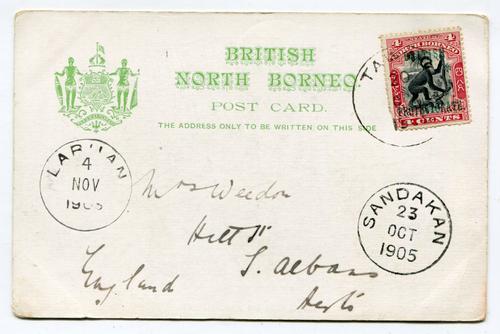 BRITISH
NORTH BORNEO
POST CARD.
THE ADDRESS ONLY TO BE WRITTEN ON THIS SIDE
4 4
NORTH BORNEO
PROTECTORATE.
4 CENTS
LABUAN
4
NOV
1905
SANDAKAN
23
OCT
1905
Mrs Weedon
Hill St
S. Albans
England Herts